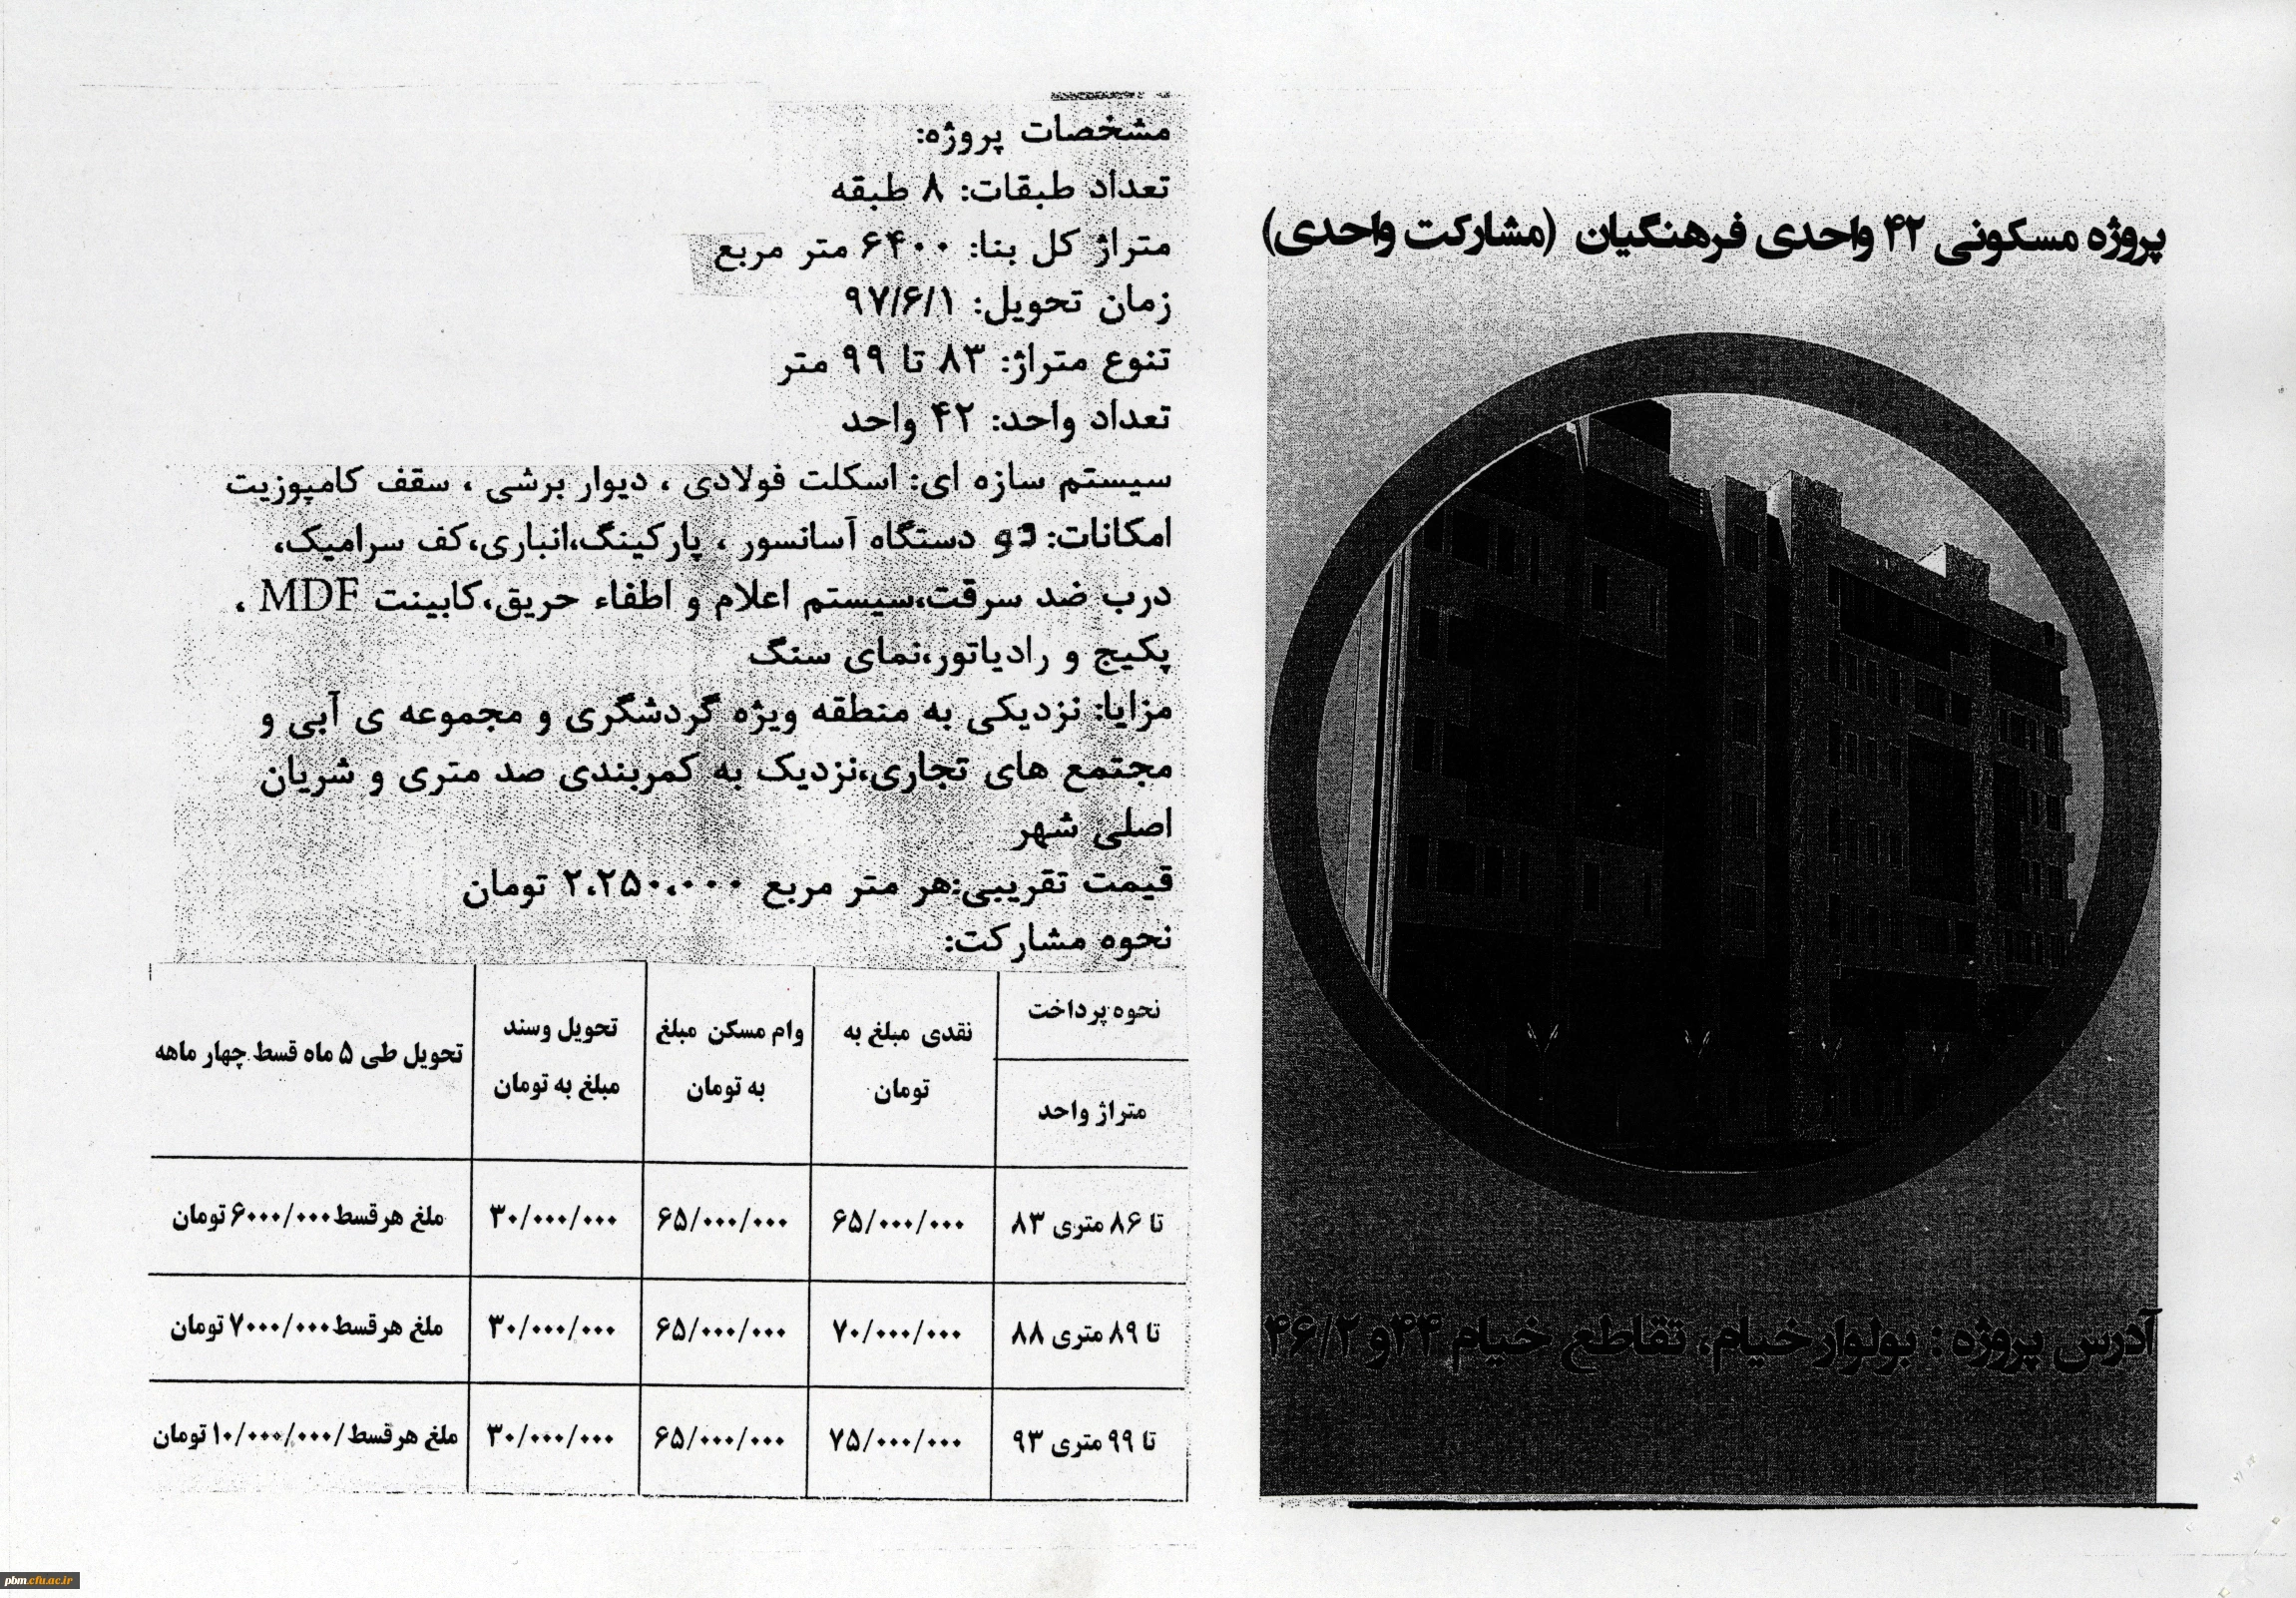 پروژه مسکونی ۴۲ واحدی فرهنگیان (مشارکت واحدی)
آدرس پروژه : بولوار خیام، تقاطع خیام ۴۴ و ۴۶/۲
مشخصات پروژه:
تعداد طبقات: ۸ طبقه
متراژ کل بنا: ۶۴۰۰ متر مربع
زمان تحویل: ۹۷/۶/۱
تنوع متراژ: ۸۳ تا ۹۹ متر
تعداد واحد: ۴۲ واحد
سیستم سازه ای: اسکلت فولادی ، دیوار برشی ، سقف کامپوزیت
امکانات: دو دستگاه آسانسور ، پارکینگ،انباری،کف سرامیک،
درب ضد سرقت،سیستم اعلام و اطفاء حریق،کابینت MDF ،
پکیج و رادیاتور،نمای سنگ
مزایا: نزدیکی به منطقه ویژه گردشگری و مجموعه ی آبی و
مجتمع های تجاری،نزدیک به کمربندی صد متری و شریان
اصلی شهر
قیمت تقریبی:هر متر مربع ۲،۲۵۰،۰۰۰ تومان
نحوه مشارکت:
نحوه پرداخت
متراژ واحد
نقدی مبلغ به
تومان
وام مسکن مبلغ
به تومان
تحویل وسند
مبلغ به تومان
تحویل طی ۵ ماه قسط چهار ماهه
تا ۸۶ متری ۸۳
۶۵/۰۰۰/۰۰۰
۶۵/۰۰۰/۰۰۰
۳۰/۰۰۰/۰۰۰
ملغ هر قسط ۶۰۰۰/۰۰۰ تومان
تا ۸۹ متری ۸۸
۷۰/۰۰۰/۰۰۰
۶۵/۰۰۰/۰۰۰
۳۰/۰۰۰/۰۰۰
ملغ هر قسط ۷۰۰۰/۰۰۰ تومان
تا ۹۹ متری ۹۳
۷۵/۰۰۰/۰۰۰
۶۵/۰۰۰/۰۰۰
۳۰/۰۰۰/۰۰۰
ملغ هر قسط /۱۰/۰۰۰/۰۰۰ تومان
pbm.cfu.ac.ir